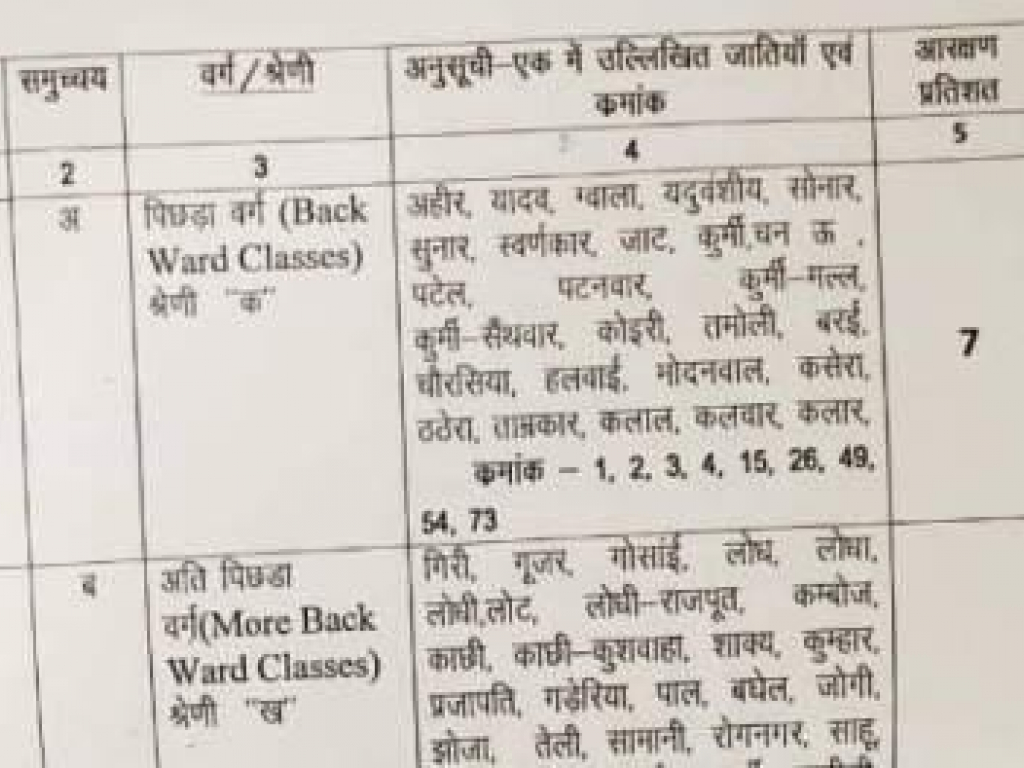 समुच्चय
वर्ग/श्रेणी
अनुसूची-एक में उल्लिखित जातियों एवं
क्रमांक
आरक्षण
प्रतिशत
2
3
4
5
अ
पिछड़ा वर्ग (Back
Ward Classes)
श्रेणी "क"
अहीर, यादव, ग्वाला, यदुवंशीय, सोनार,
सुनार, स्वर्णकार, जाट, कुर्मी,चन ऊ ,
पटेल, पटनवार, कुर्मी-मल्ल,
कुर्मी-सैंथवार, कोइरी, तमोली, बरई,
चौरसिया, हलवाई, मोदनवाल, कसेरा,
ठठेरा, ताम्रकार, कलाल, कलवार, कलार,
क्रमांक - 1, 2, 3, 4, 15, 26, 49,
54, 73
7
ब
अति पिछडा
वर्ग(More Back
Ward Classes)
श्रेणी "ख"
गिरी, गूजर, गोसांई, लोध, लोधा,
लोधी,लोट, लोधी-राजपूत, कम्बोज,
काछी, काछी-कुशवाहा, शाक्य, कुम्हार,
प्रजापति, गडेरिया, पाल, बघेल, जोगी,
झोजा, तेली, सामानी, रोगनगर, साहू,